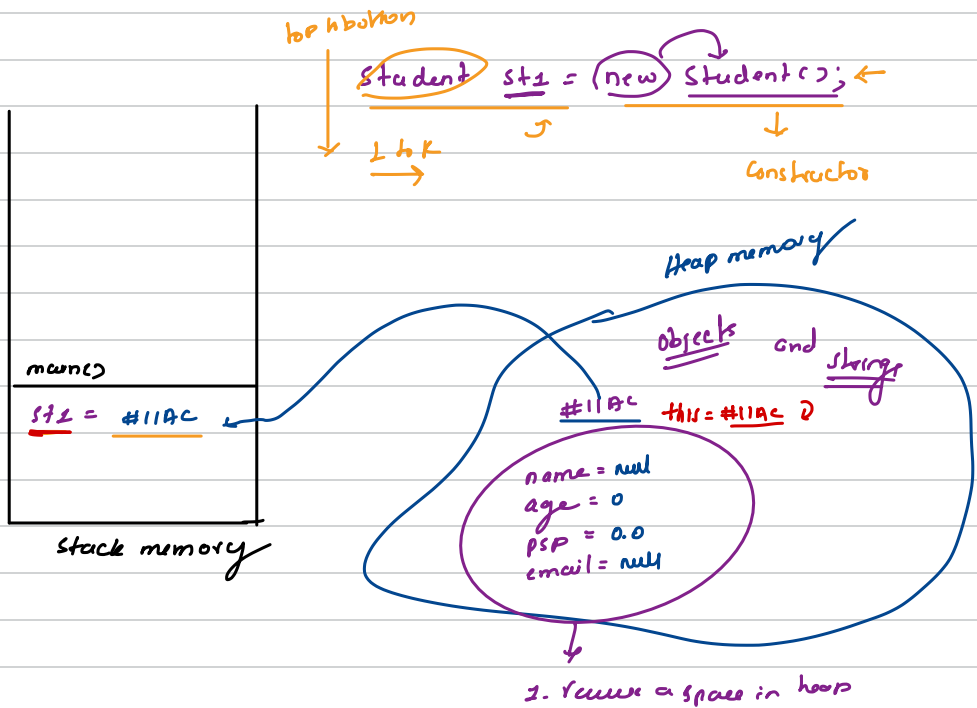 top to bottom
Student st1 = new Student();
L to R
Constructor
Heap memory
objects and strings
main()
st1 = #11AC
#11AC this = #11AC
name = null
age = 0
psp = 0.0
email = null
Stack memory
1. reserve a space in heap